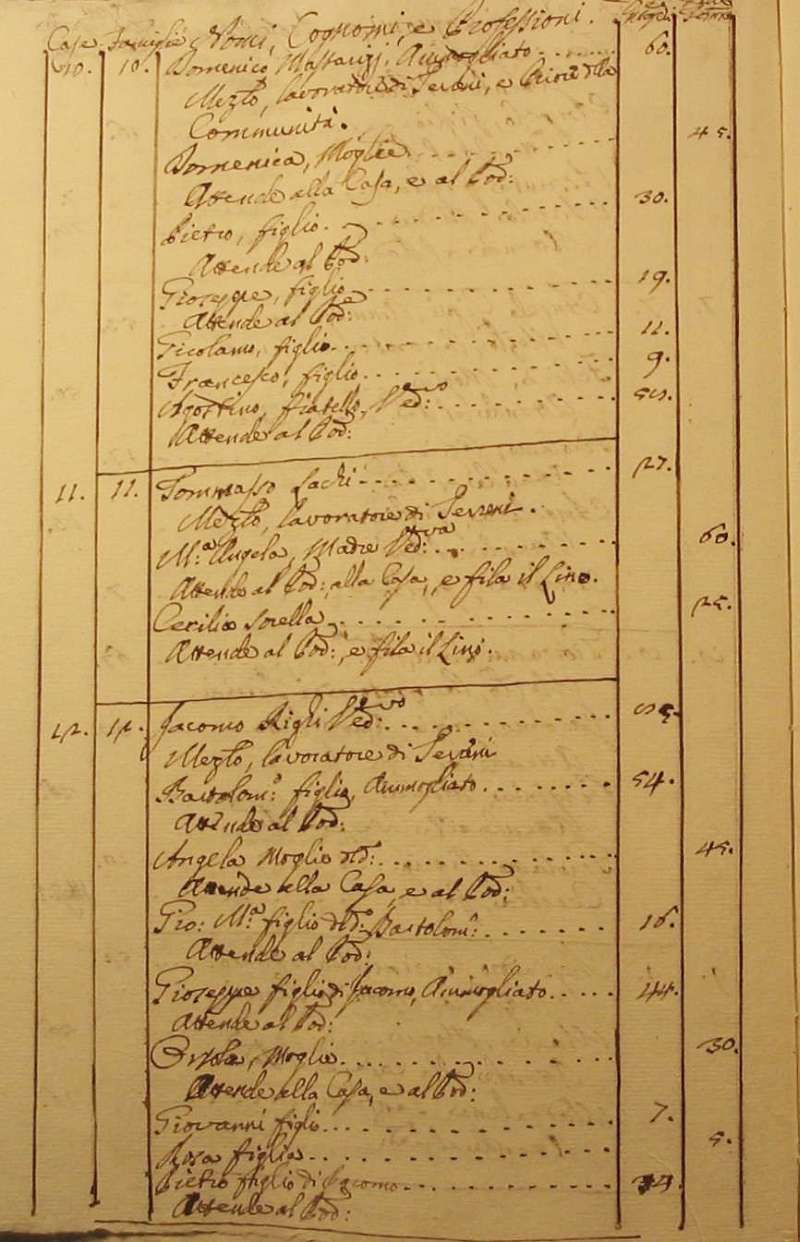 Case Famiglie Nomi, Cognomi, e Professioni.
10. 10. Domenico Ammogliato 60.
Mez.to, lavoratore di Terreni, e della
Communità.
Domenica, Moglie 45.
Attende alla Casa, e al Pod:
Pietro, figlio 30.
Attende al Pod:
Gioseppe, figlio 19.
Attende al Pod:
Girolamo, figlio 12.
Francesco, figlio 9.
Agostino, fratello, Ved:vo
Attende al Pod:
11. 11. Tommasso Sachi 27.
Mez.to, lavoratore di Terreni.
M:a Angela, Madre Ved:va 60.
Attende al Pod:, alla Casa, e fila il Lino.
Cecilia sorella 25.
Attende al Pod:, e fila il Lino.
12. 12. Jacomo Righi Ved:vo
Mez.to, lavoratore di Terreni
Bartolom:o figlio, Ammogliato 54.
Attende al Pod:
Angela Moglie d:d: 45.
Attende alla Casa, e al Pod:
Gio: M:a figlio di d:o Bartolom:o 16.
Attende al Pod:
Gioseppe figlio di Jacomo, Ammogliato 44.
Attende al Pod:
Orsola, Moglie 30.
Attende alla Casa, e al Pod:
Giovanni figlio 7.
Rosa figlia 5.
Pietro figlio di Jacomo
Attende al Pod: